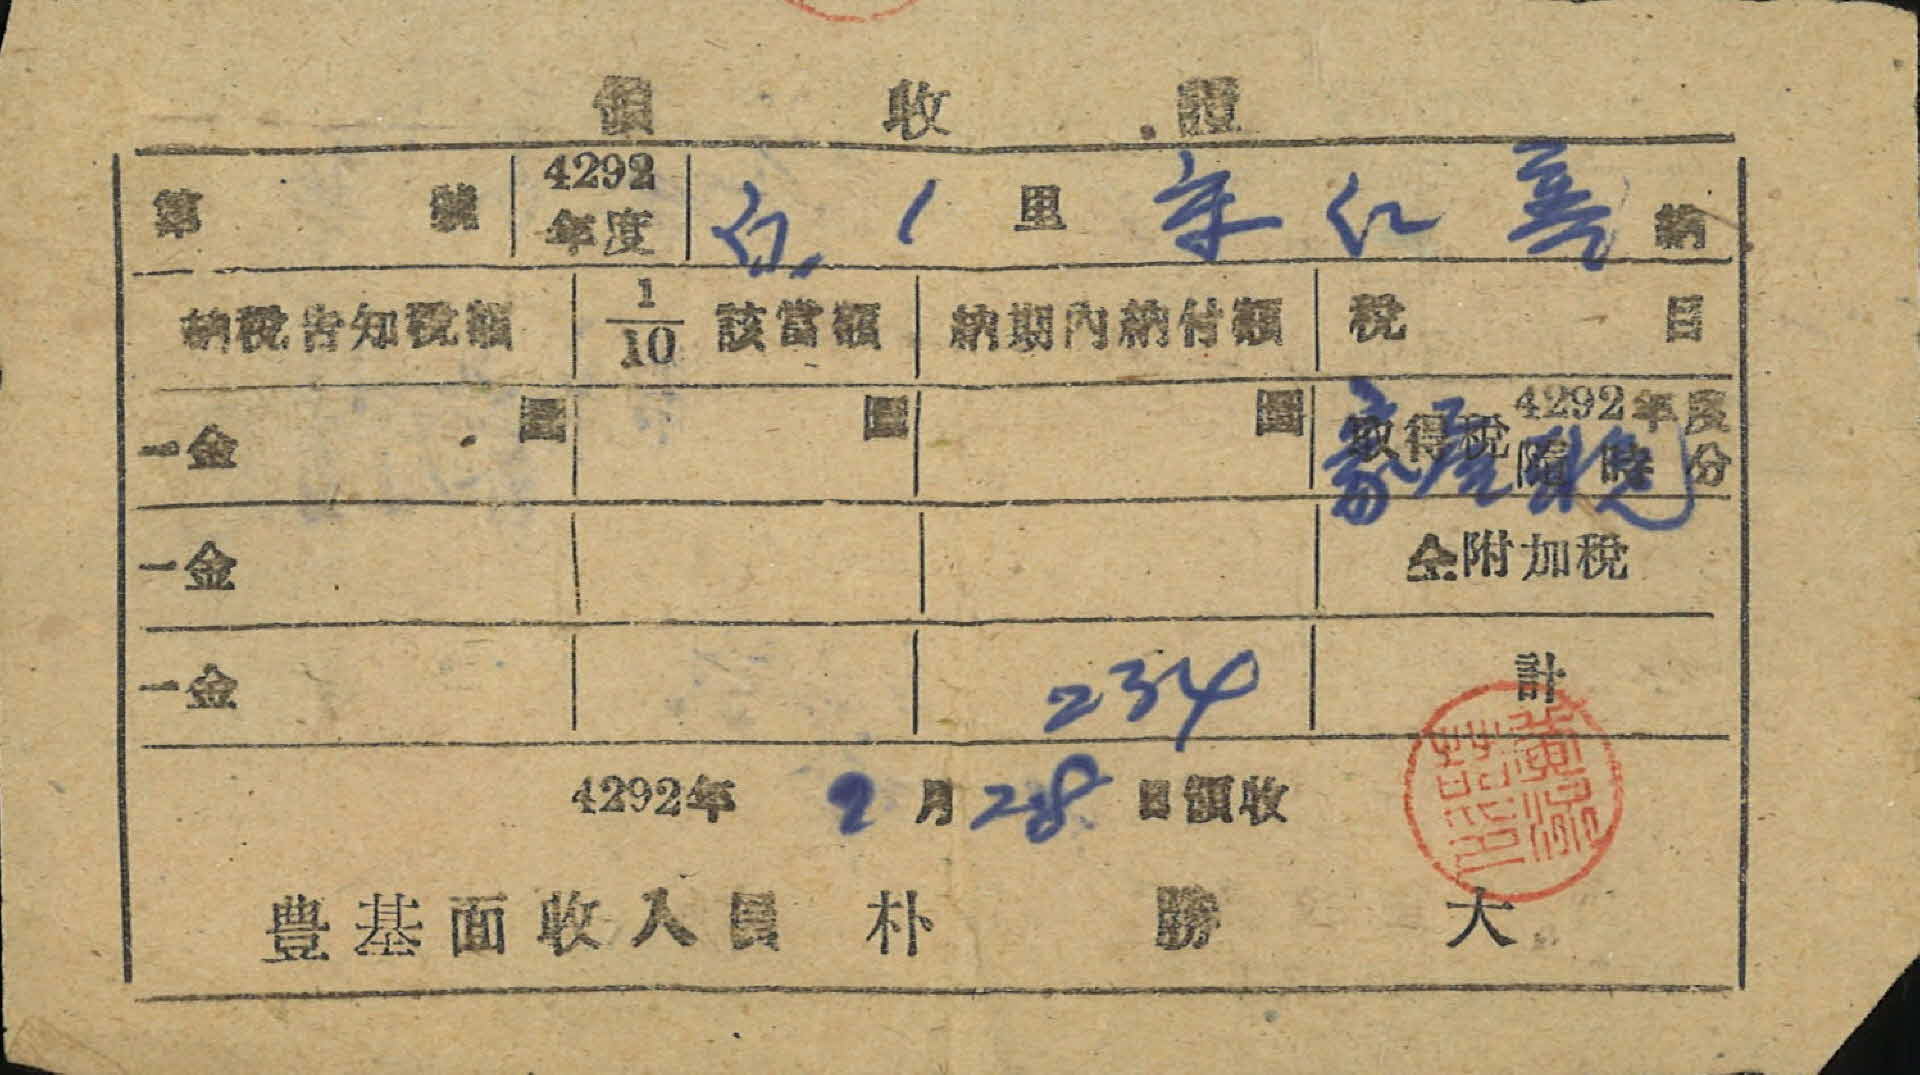 領收證
第 號 4292年度 白.1里 宋仁喜 納
納稅告知稅額 1/10 該當額 納期內納付額 稅目
一金 圜 圜 圜 取得稅 4292年度 隨時分
家屋稅
一金 仝附加稅
一金 234 計
4292年 2月28日領收
豊基面收入員 朴勝大